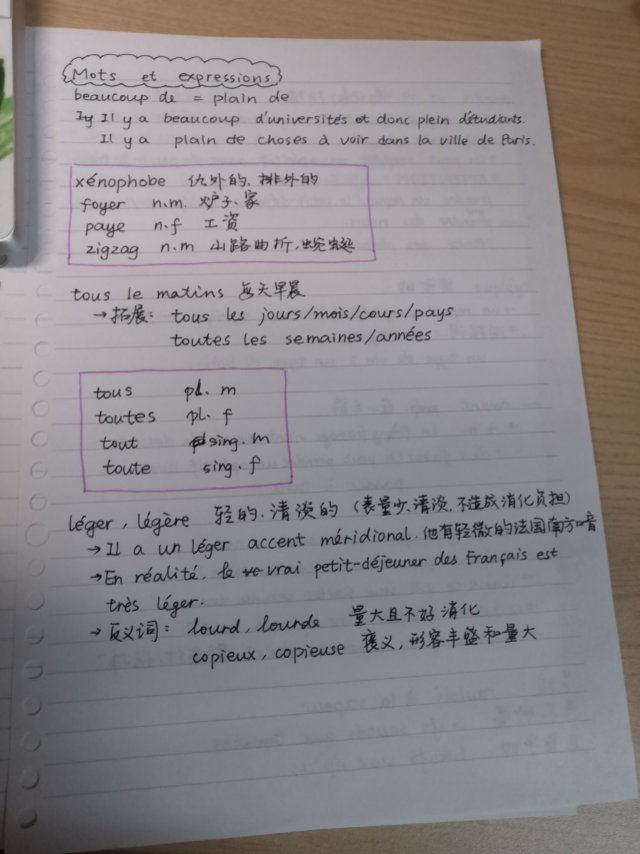 Mots et expressions
beaucoup de = plain de
Il y a beaucoup d'universités et donc plein d'étudiants.
Il y a plain de choses à voir dans la ville de Paris.
xénophobe 仇外的、排外的
foyer n.m. 炉子、家
paye n.f 工资
zigzag n.m 山路曲折,蜿蜒
tous le matins 每天早晨
→拓展: tous les jours/mois/cours/pays
toutes les semaines/années
tous pl. m
toutes pl. f
tout sing. m
toute sing. f
léger, légère 轻的、清淡的 (表量少、清淡、不造成消化负担)
→Il a un léger accent méridional. 他有轻微的法国南方口音
→En réalité, le vrai petit-déjeuner des français est
très léger.
→反义词: lourd, lourde 量大且不好消化
copieux, copieuse 褒义,形容丰盛和量大